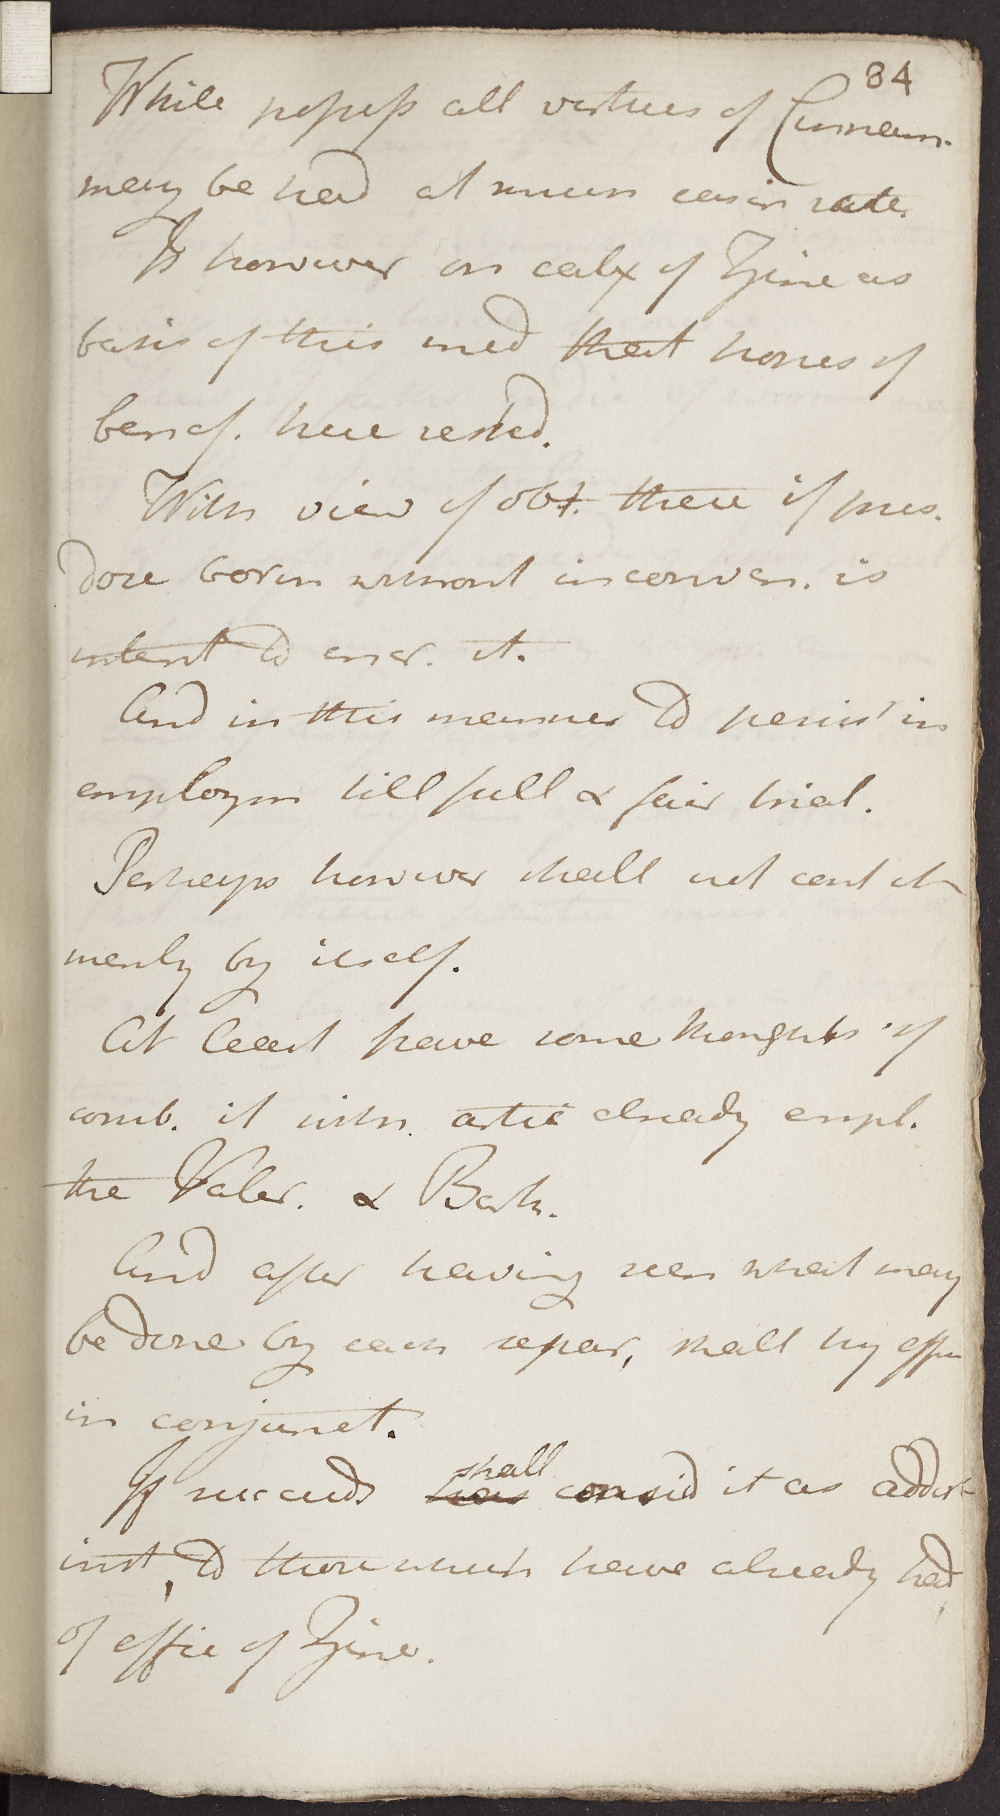 84
While possess all virtues of Cinnam.
may be had at much easier rate.
Is however on calx of Zinc as
basis of this med that hopes of
benef. here rested.
With view of obt. there if pres.
dose born without inconven. is
intent to encr. it.
And in this manner to persist in
employm till full & fair trial.
Perhaps however shall not
merely by itself.
At least have some thoughts of
comb. it with. artic already empl.
the Valer. & Bark.
And after having seen what may
be done by each separ, shall try
in conjunct.
shall
If succeeds consid it as addit
inst, to those which have already had
of effic of Zinc.